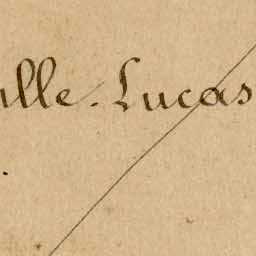 ulle. Lucas